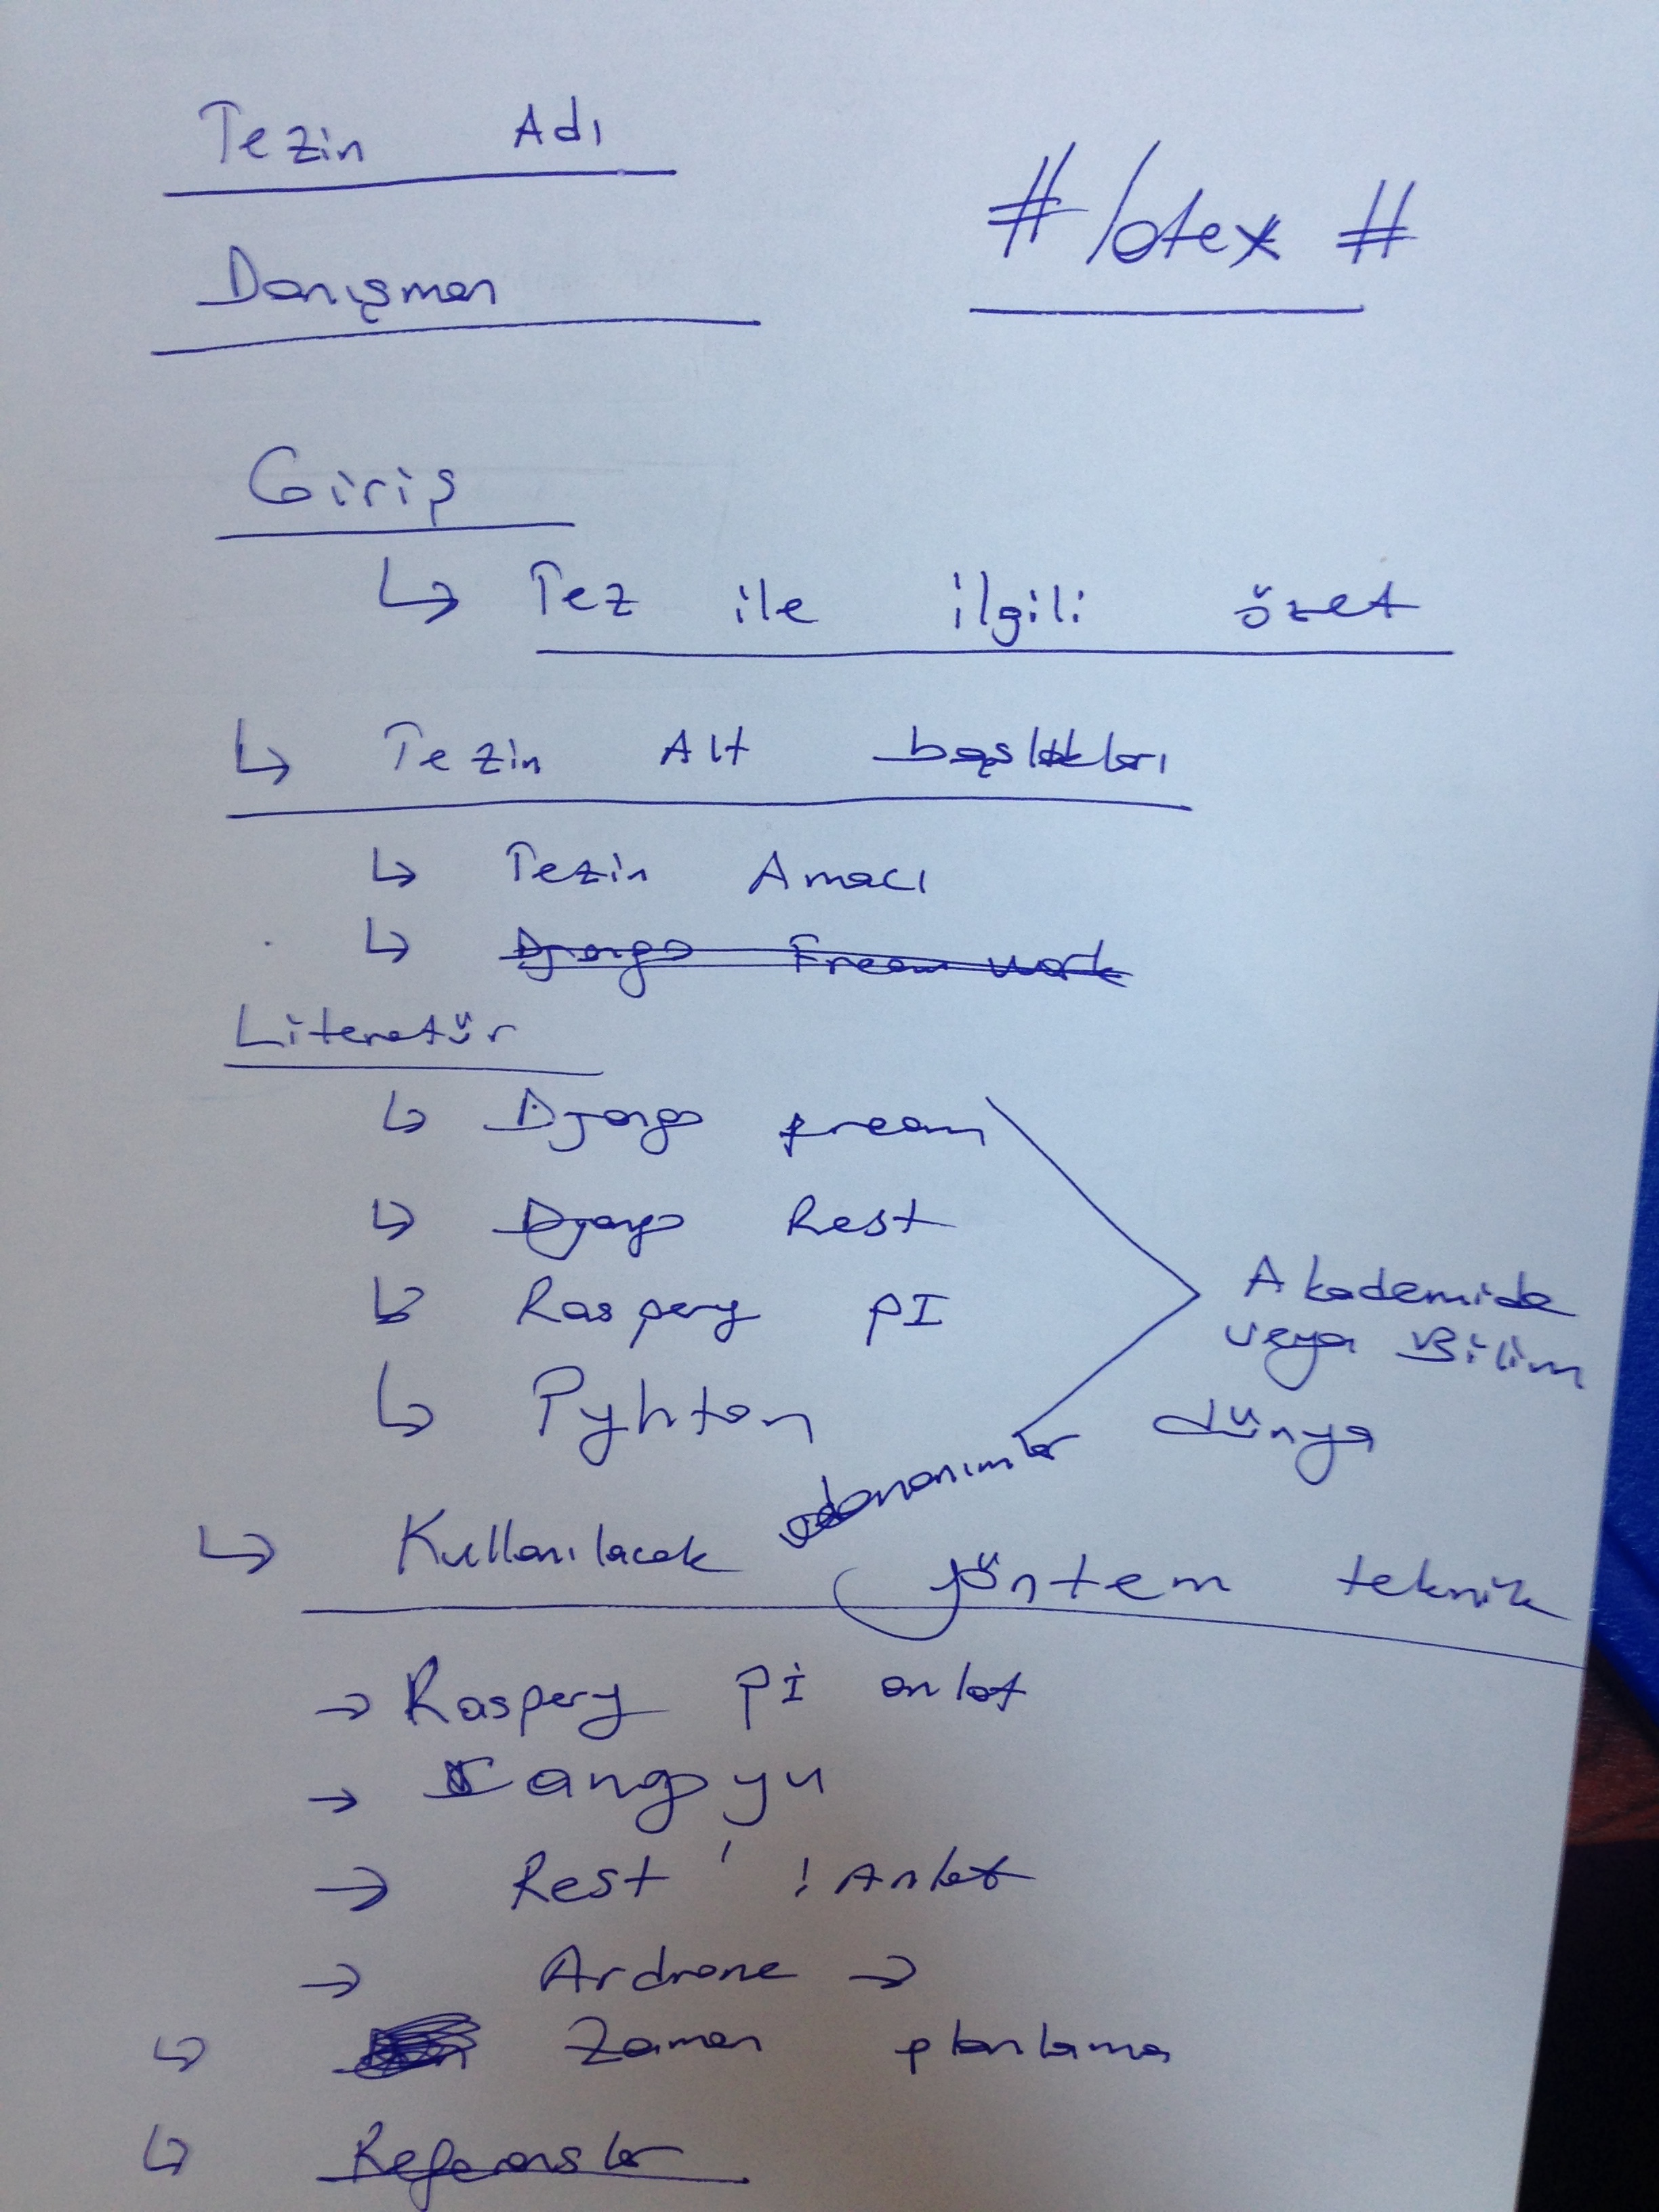 Tezin Adı
# latex #
Danışman
Giriş
↳ Tez ile ilgili özet
↳ Tezin Alt başlıkları
↳ Tezin Amacı
↳ Django Fream work
Literatür
↳ Django fream
↳ Django Rest
↳ Raspery PI
↳ Pyhton
Akademide
veya Bilim
dünya
↳ Kullanılacak donanımlar
yöntem teknik
→ Raspery Pi anlat
→ angoyu
→ Rest' ! Anlat
→ Ardrone →
↳ Zaman planlama
↳ Referanslar